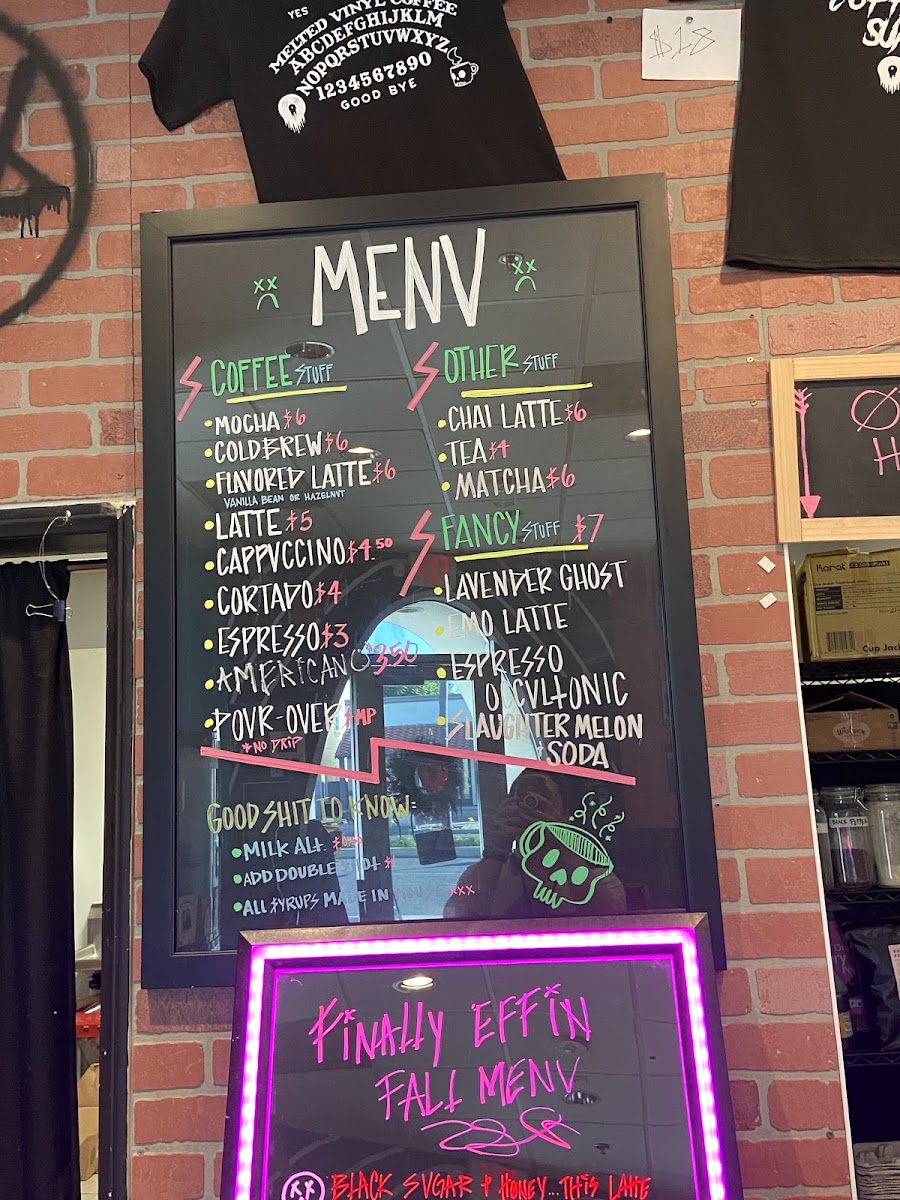 YES
MELTED VINYL COFFEE
ABCDEFGHIJKLM
NOPQRSTUVWXYZ
1234567890
GOOD BYE
$18
MENV
COFFEE STUFF
• MOCHA $6
• COLDBREW $6
• FLAVORED LATTE $6
VANILLA BEAN OR HAZELNVT
• LATTE $5
• CAPPVCCINO $4.50
• CORTADO $4
• ESPRESSO $3
• AMERICANO $350
• POVR-OVER $MP
*NO DRIP
OTHER STUFF
• CHAI LATTE $6
• TEA $4
• MATCHA $6
FANCY STUFF $7
• LAVENDER GHOST
• EMO LATTE
• ESPRESSO
OCCVLTONIC
• SLAUGHTER MELON
SODA
GOOD SHIT TO KNOW:
• MILK ALT.
• ADD DOUBLE
• ALL SYRUPS MADE IN HOUSE XXX
FINALLY EFFIN
FALL MENV
BLACK SVGAR + HONEY... THIS LATTE
Karat
Cup Jac